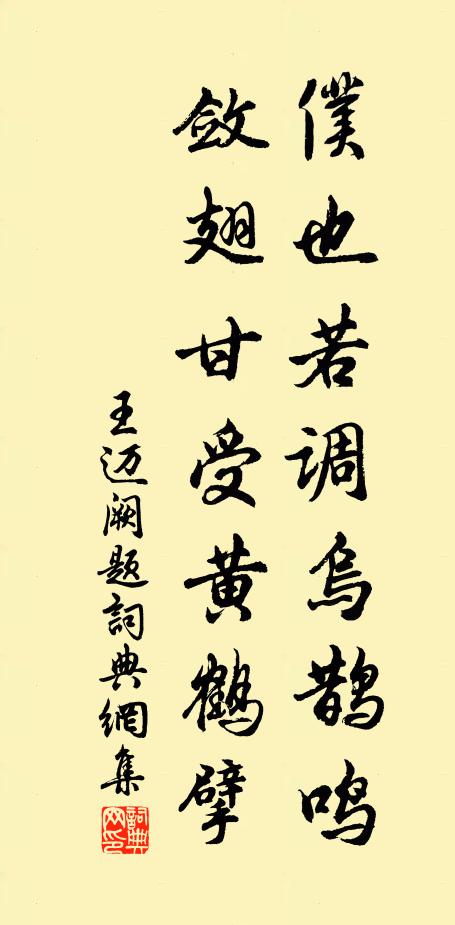 僕也若调乌鹊鸣
敛翅甘受黄鹤擘
王迈阙题詞典網集
詞典网印